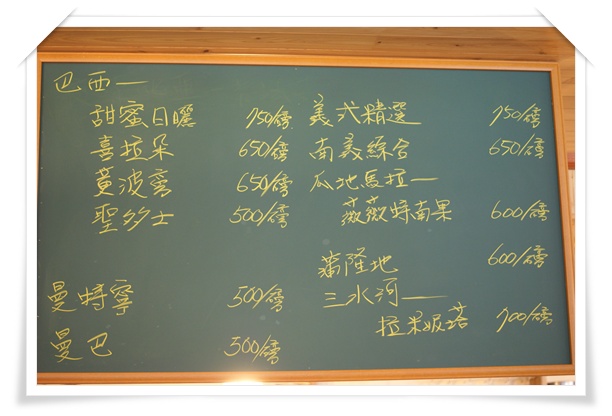 巴西一
甜蜜日曬 750/磅
喜拉朵 650/磅
黃波旁 650/磅
聖多士 500/磅
曼特寧 500/磅
曼巴 300/磅
美式精選 750/磅
南義綜合 650/磅
瓜地馬拉一
薇薇特南果 600/磅
蒲隆地 600/磅
三水河一
拉米妮塔 700/磅